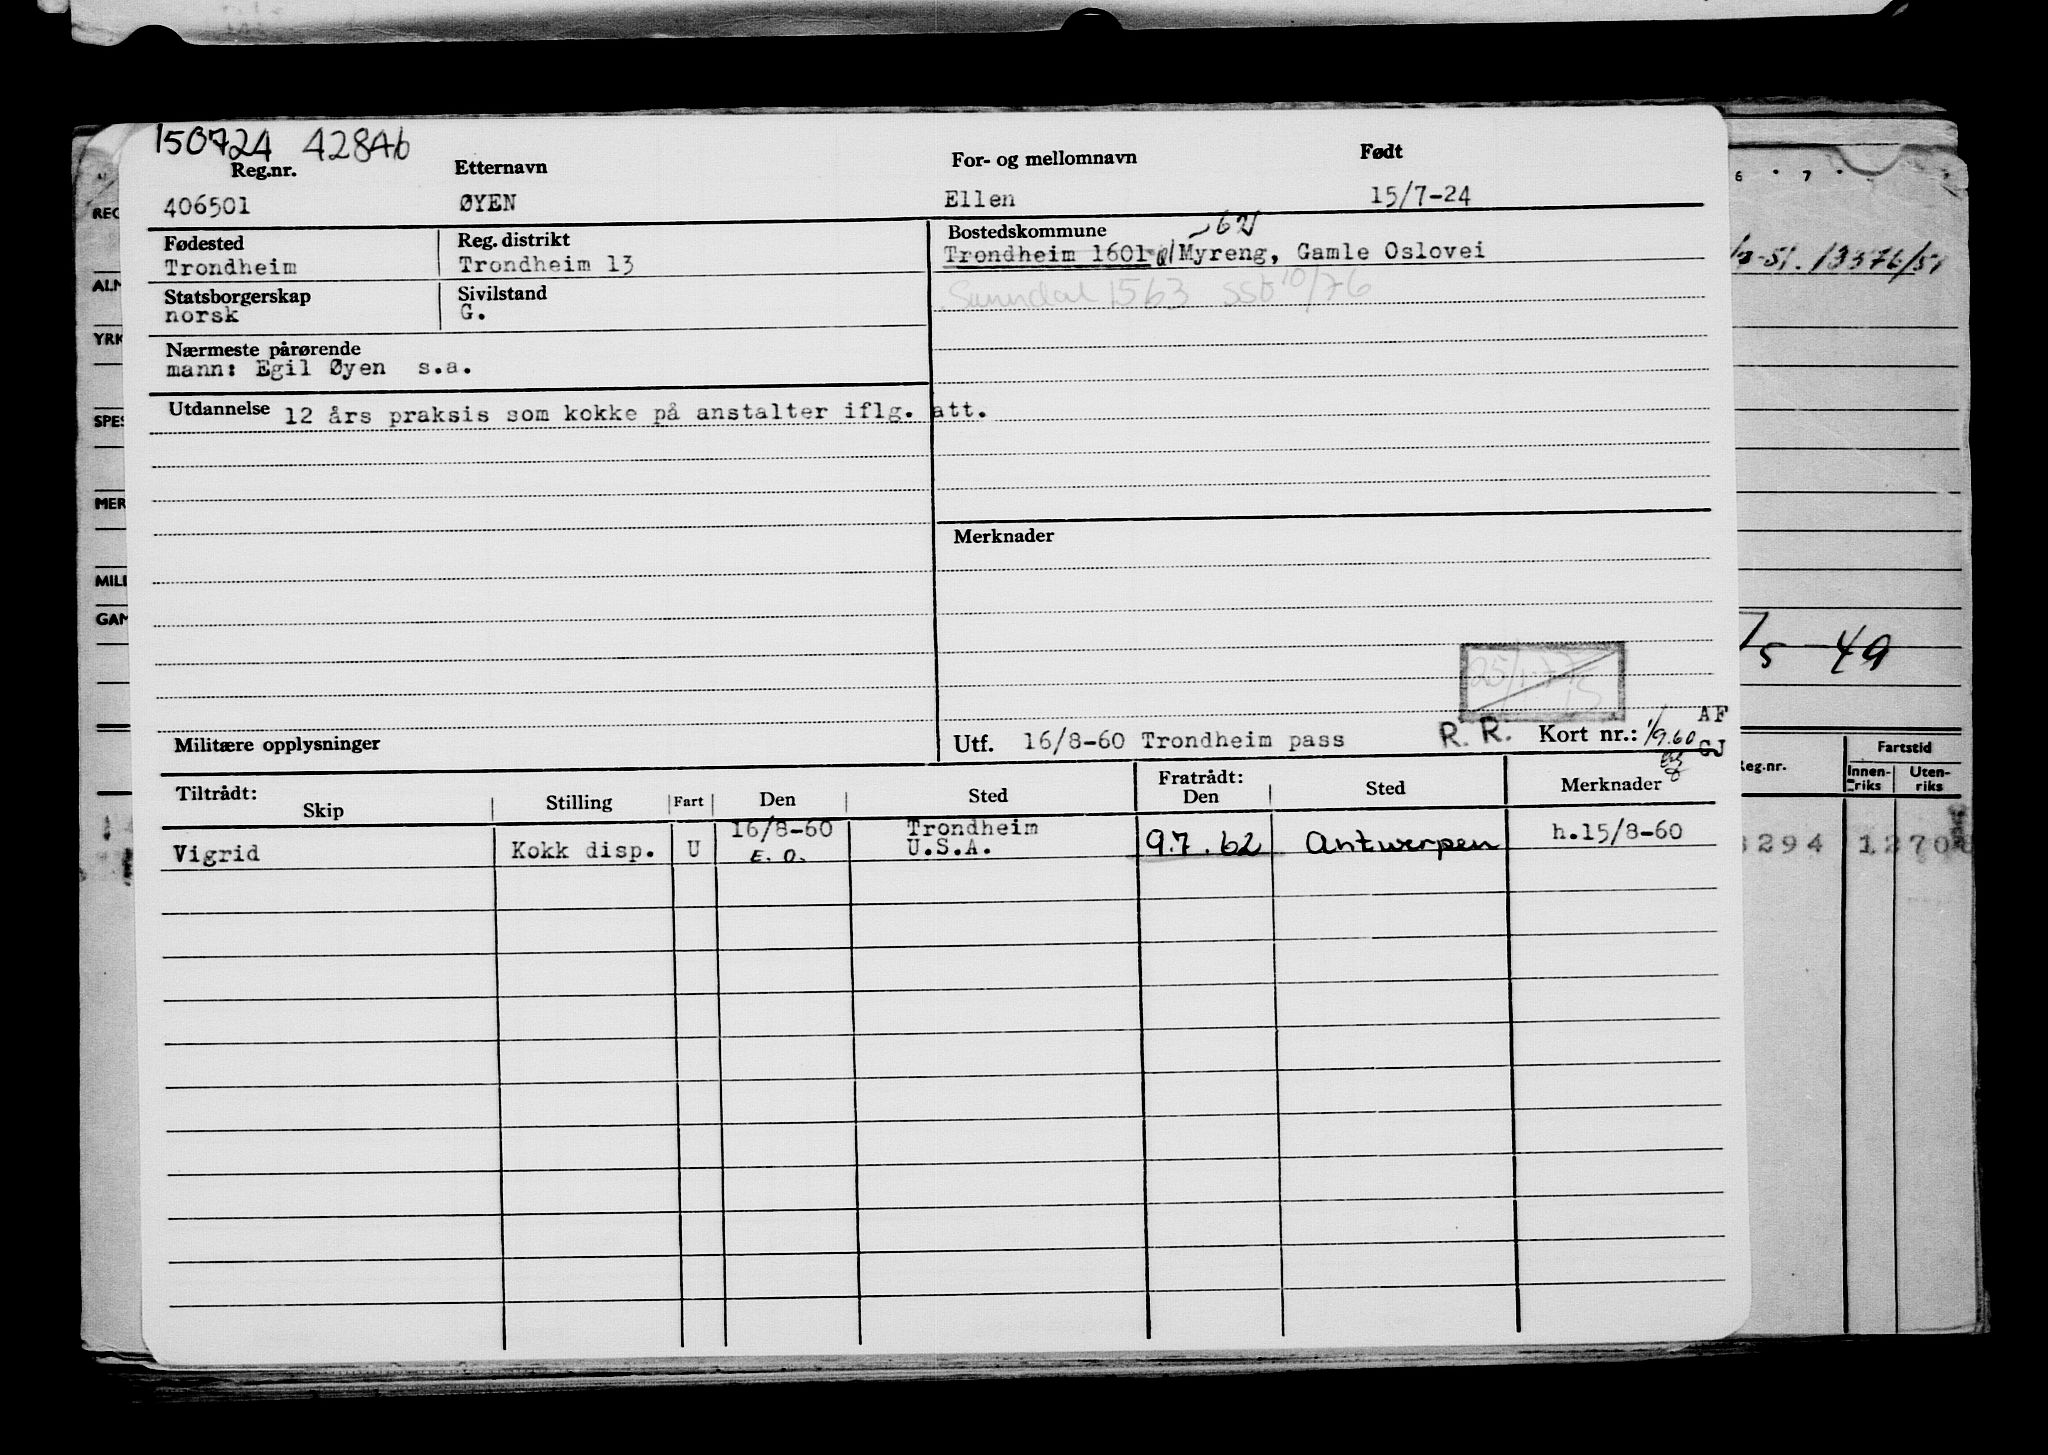 150724 42846
Reg.nr. Etternavn For- og mellomnavn Født
406501 ØYEN Ellen 15/7-24
Fødested Reg. distrikt Bostedskommune -62
Trondheim Trondheim 13 Trondheim 1601 Myreng, Gamle Oslovei
Statsborgerskap Sivilstand Sunndal 1563 SSb 10/76
norsk G.
Nærmeste pårørende
mann: Egil Øyen s.a.
Utdannelse 12 års praksis som kokke på anstalter iflg. att.
Merknader
25/1-77
Militære opplysninger Utf. 16/8-60 Trondheim pass R. R. Kort nr.: 1/9.60 AF
GJ
Tiltrådt: Fratrådt:
Skip Stilling Fart Den Sted Den Sted Merknader
16/8-60 Trondheim
Vigrid Kokk disp. U E.O. U.S.A. 9.7.62 Antwerpen h.15/8-60
REG
ALM
YRK
SPES
MER
MILI
GAM
6 7
-51. 13376/51
5 -49
Reg.nr. Fartstid
Innen-riks Uten-riks
294 1270